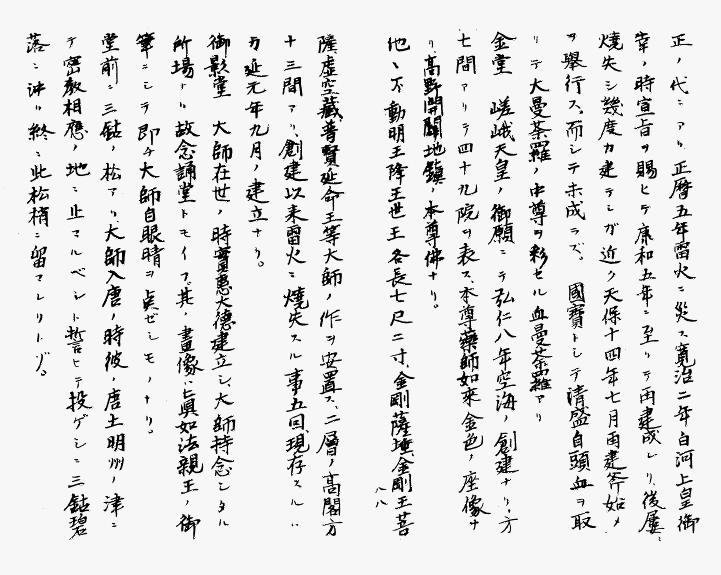 正ノ代ニアリ正暦五年雷火ニ災ス寛治二年白河上皇御
幸ノ時宣旨ヲ賜ヒテ康和五年ニ至リテ再建成レリ、後屡ニ
焼失シ幾度カ建テシガ近ク天保十四年七月再建斧始メ
ヲ舉行ス。而シテ未成ラズ。國寶トシテ清盛自頭血ヲ取
リテ大曼荼羅ノ中尊ヲ彩セル血曼荼羅アリ
金堂 嵯峨天皇ノ御願ニテ弘仁八年空海ノ創建ナリ、方
七間アリテ四十九院ヲ表ス。本尊藥師如來金色ノ座像ナ
リ。高野開闢地鎮ノ本尊佛ナリ。
他ハ不動明王降王世王各長七尺二寸、金剛薩埵金剛王菩
八八
薩虚空藏普賢延命王等大師ノ作ヲ安置ス。二層ノ高閣方
十三間アリ、創建以来雷火ニ焼失スル事五回、現存スルハ
万延元年九月ノ建立ナリ。
御影堂 大師在世ノ時實惠大徳建立シ、大師持念シタル
所場ナリ故念誦堂トモイフ、其ノ畫像ハ眞如法親王ノ御
筆ニシテ即チ大師自眼睛ヲ点ゼシモノナリ。
堂前ニ三鈷ノ松アリ、大師入唐ノ時彼ノ唐土明州ノ津ニ
テ密教相應ノ地ニ止マルベシト誓ヒテ投ゲシニ三鈷碧
落ニ沖リ終ニ此松梢ニ留マレリトゾ。